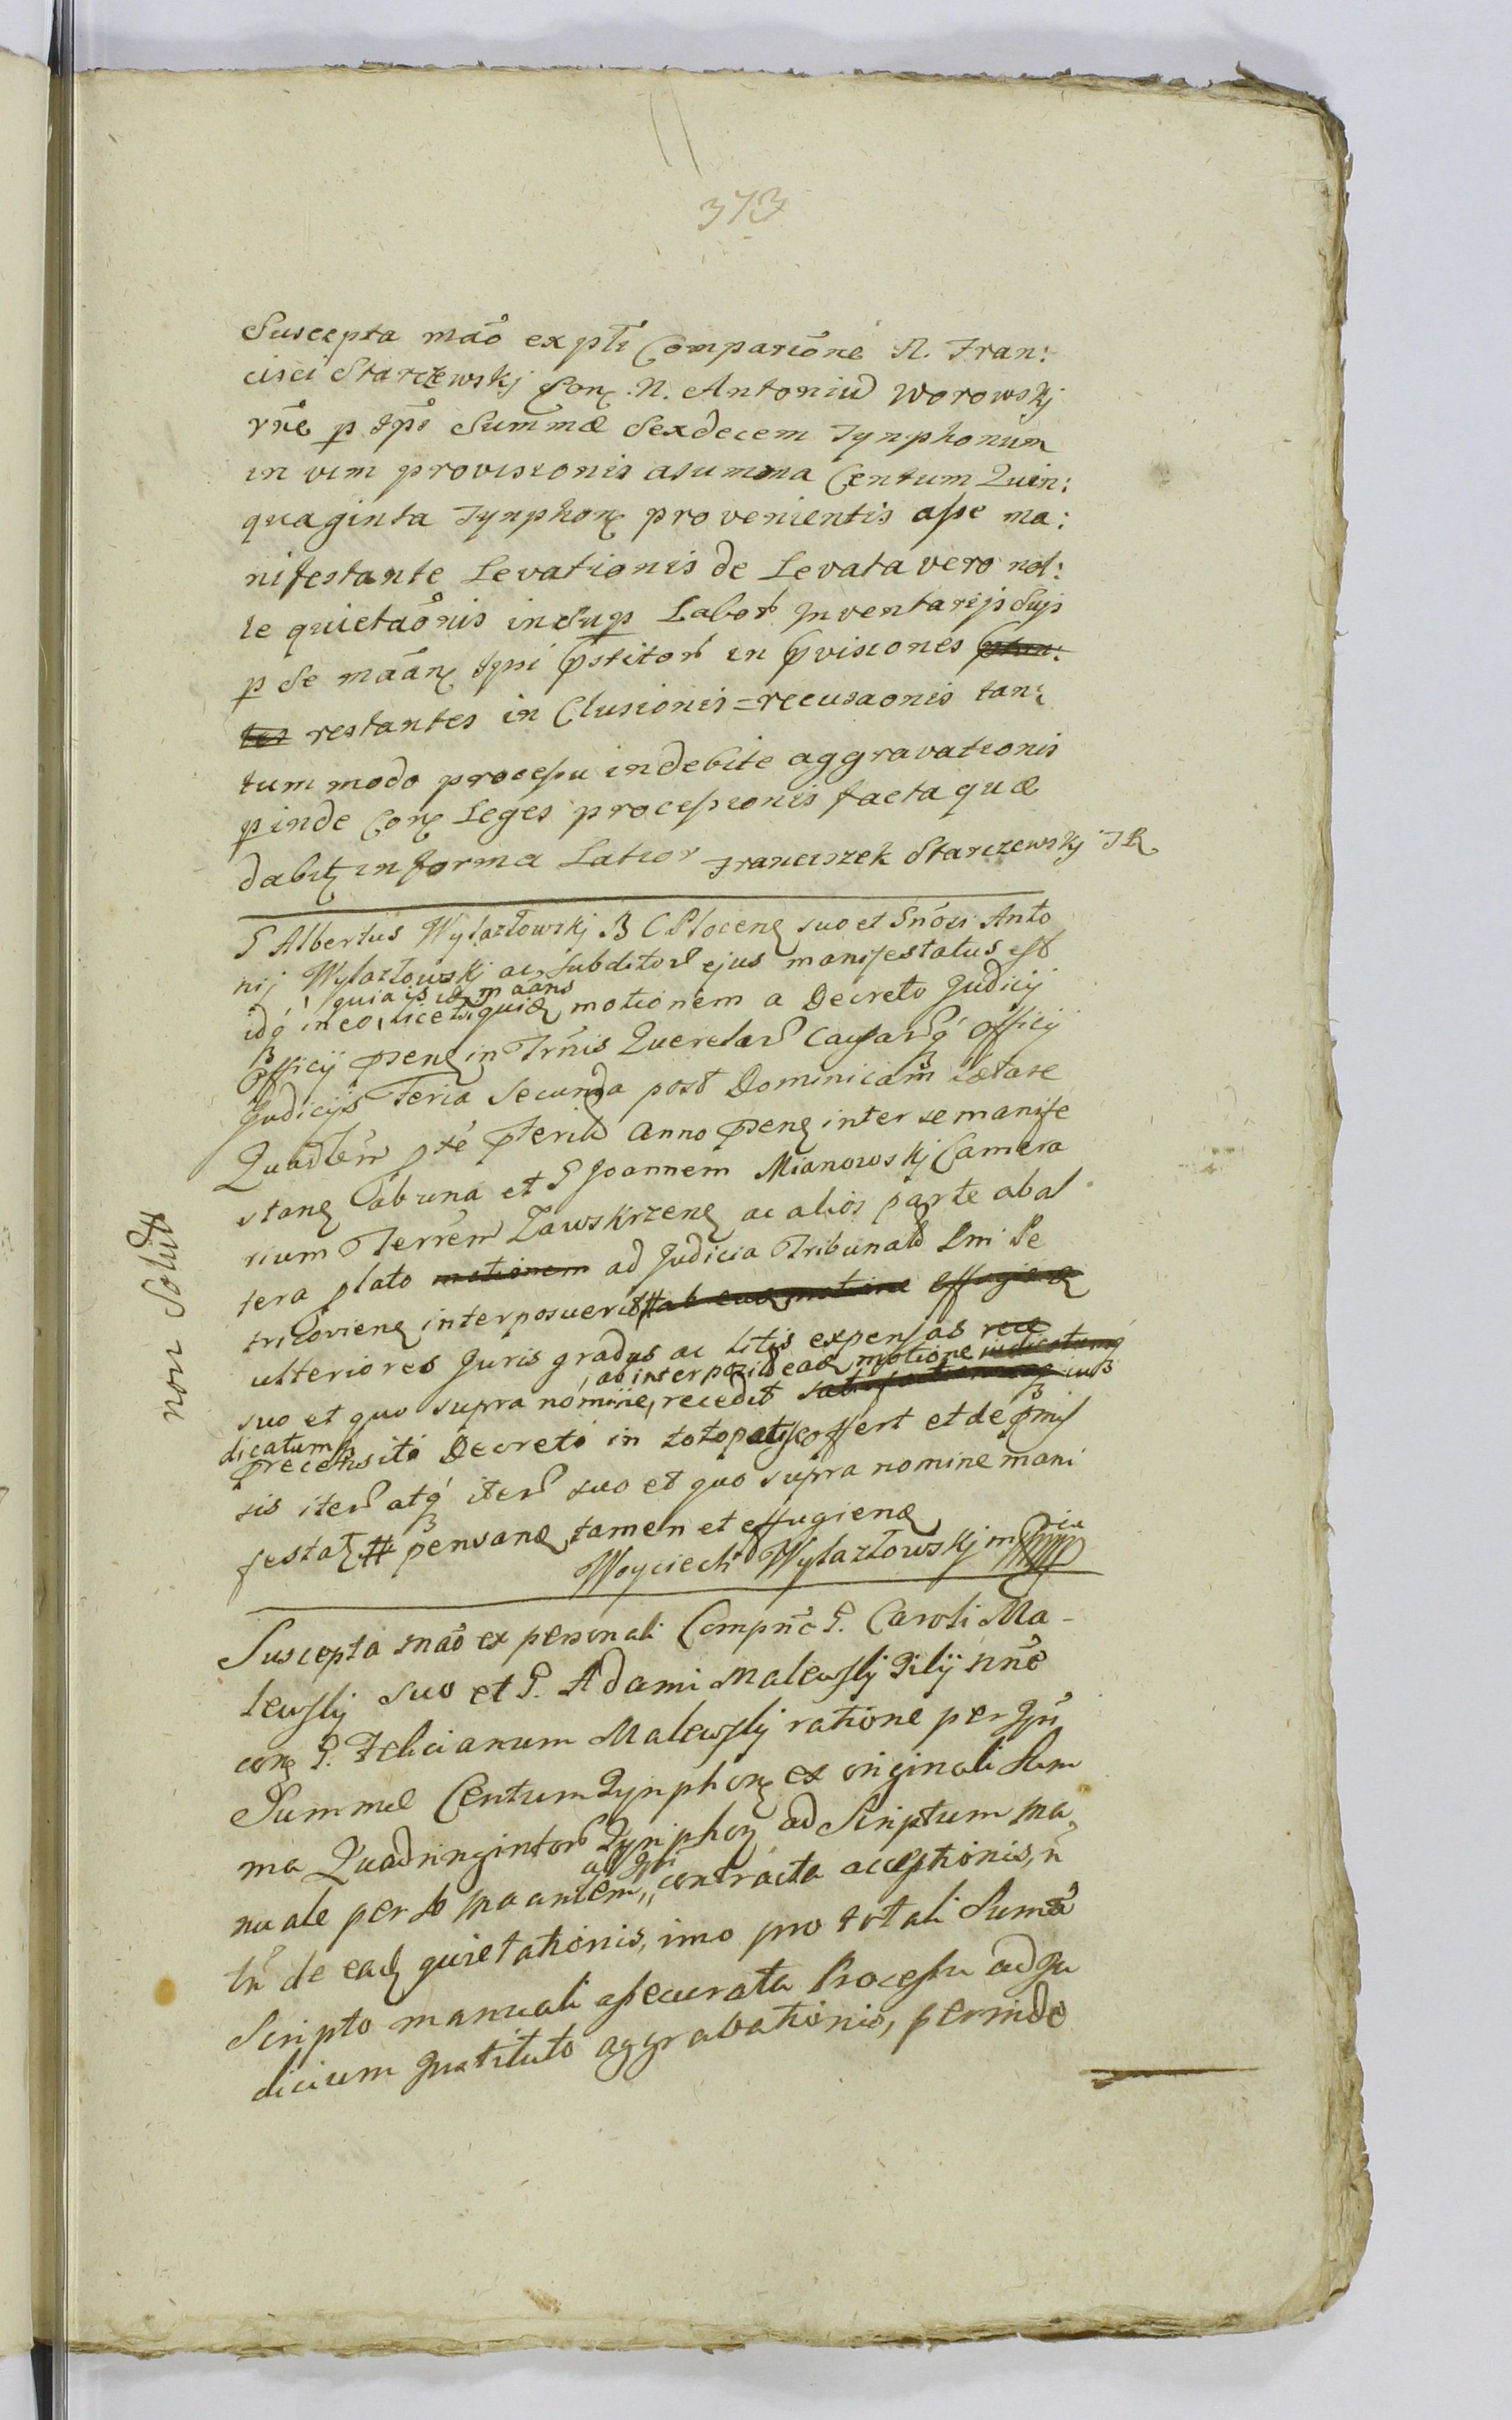 373
Suscepta mãõ ex płi Comparione N. Fran:
cisci Starczewskj Con N. Antoniu Worowskj
rñe p ipẽ Summæ Sexdecem Tynphonum
in vim provisionis asumma Centum Quin:
quaginta Tynphon provenientis aße ma:
nifestante Levationis de Levata vero nol:
le quietaõnis insup Labor Inventarijs Sujs
p Se mãan ipsi pstitor in pvisiones
restantes in Clusionis = recusaonis tan:
tum modo proceßu indebite aggravationis
pinde Con Leges proceßionis facta quæ
dabit in forma Latior Franciszek Starczewskj
P Albertus Wylazłowskj B C Plocen suo et Anto
nij Wylazłowskj ac subditor ejus manifestatus est
quia is ide mãans
idq in eo, licet motionem a Decreto Judicij
Officij psen in Trnis Querelar Causarq Officij
Judicijs Feria Secunda post Dominicam Lætare
anno psen inter se manife
stan ab una et P Joannem Mianowskj Camera
rium Terren Zawskrzen ac alios parte abal
tera plato motionem ad Judicia Tribunal Rni Pe
tricovien interposuerit
ulteriores Juris gradus ac litis expensas
ab interposita ead motione
suo et quo supra nomine, recedit
dicatum
precensito Decreto in toto offert et de pmis
sis iter atq iter suo et quo supra nomine mani
festat pensand tamen et effugiend
Woyciech Wylazłowskj mp
non Solut
Suscepta mãõ ex personali Compñe P. Caroli Ma-
lewskj suo et P. Adami Malewskj Filij nñe
con P. Felicianum Malewskj ratione per Ipu
Summæ Centum Tynphon ex originali Sum
ma Quadringintor Tynphon ad Scriptum Ma
ad Ipi
nuale per se Maantem, contracta acceptionis, n
tn de ead quietationis, imo pro totali Suma
Scripto manuali aßecurata Proceßu ad Ju
dicium Instituto aggravationis, perinde